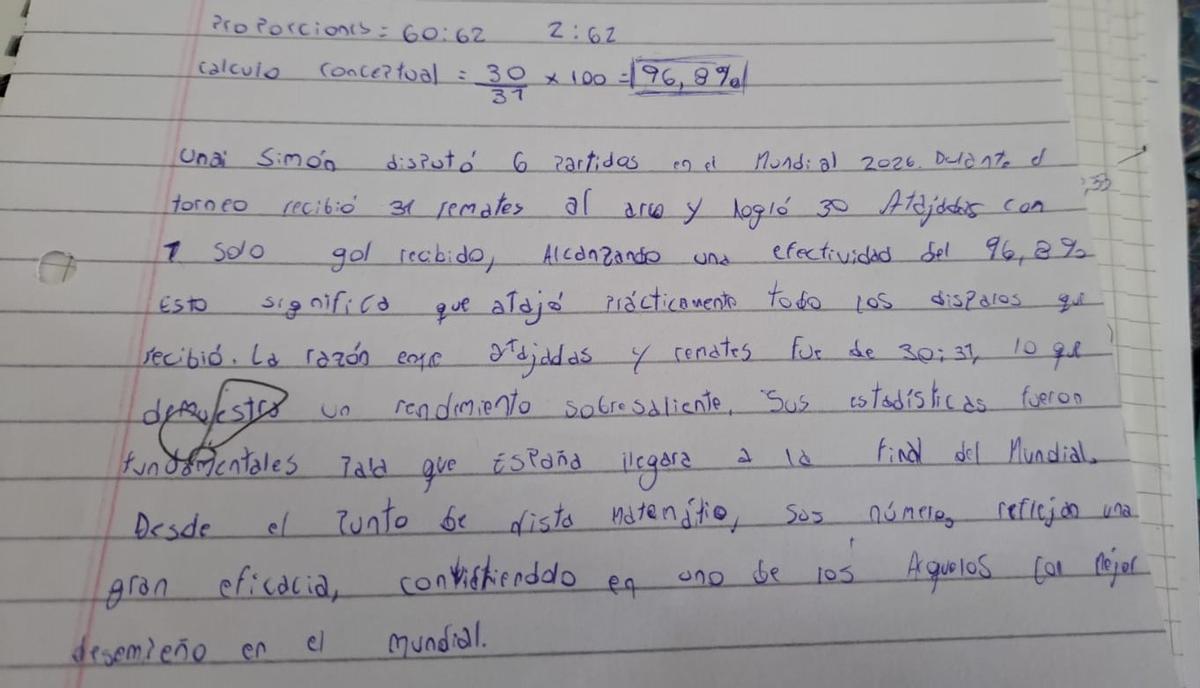 Proporciones = 60:62 2:62
Calculo conceptual = 30/31 × 100 = 96,8%
Unai Simón disputó 6 partidas en el Mundial 2026. Durante el
torneo recibió 31 remates al arco y logró 30 Atajadas con
1 solo gol recibido, Alcanzando una efectividad del 96,8%
Esto significa que atajó prácticamente todo los disparos que
recibió. La razón entre atajadas y remates fue de 30:31, lo que
demuestra un rendimiento sobresaliente. Sus estadísticas fueron
fundamentales para que España llegara a la final del Mundial.
Desde el punto de vista matemátio, sus números reflejan una
gran eficacia, convirtiendolo en uno de los Arqueros con mejor
desempeño en el mundial.